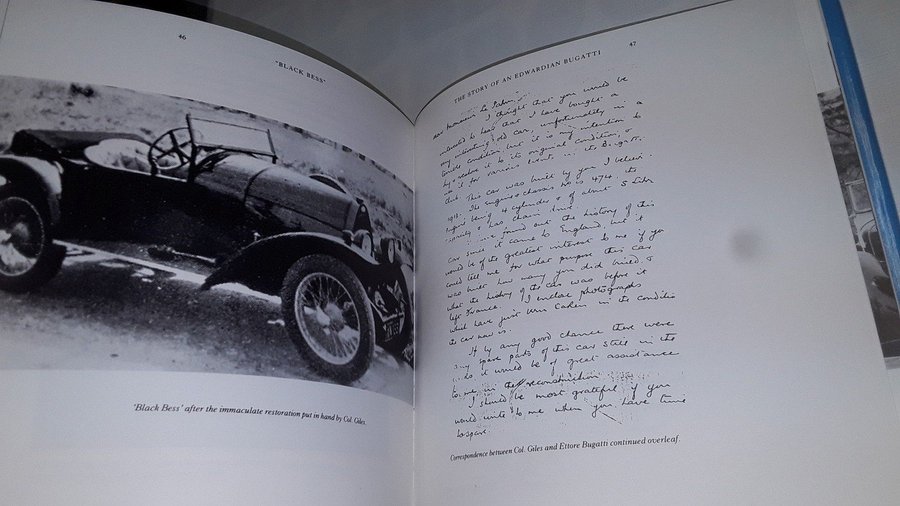 46
"BLACK BESS"
'Black Bess' after the immaculate restoration put in hand by Col. Giles.
THE STORY OF AN EDWARDIAN BUGATTI
47
Dear Monsieur Le Patron,
I thought that you would be
interested to hear that I have bought a
very interesting old car, unfortunately in a
terrible condition but it is my intention to
try & restore it to its original condition, &
use it for various events in the Bugatti
Club. This car was built by you I believe
The engine & chassis No is 474, the
engine being 4 cylinders & of about 5 litre
capacity & has chain drive.
found out the history of this
car since it came to England, but it
would be of the greatest interest to me if you
could tell me for what purpose this car
was built how many you did build &
what the history of the car was before it
left France. I enclose photographs
which have just been taken in the condition
the car now is.
If by any good chance there were
any spare parts of this car still in the
works it would be of great assistance
to me in the reconstruction
I should be most grateful if you
would write to me when you have time
to spare.
Correspondence between Col. Giles and Ettore Bugatti continued overleaf.